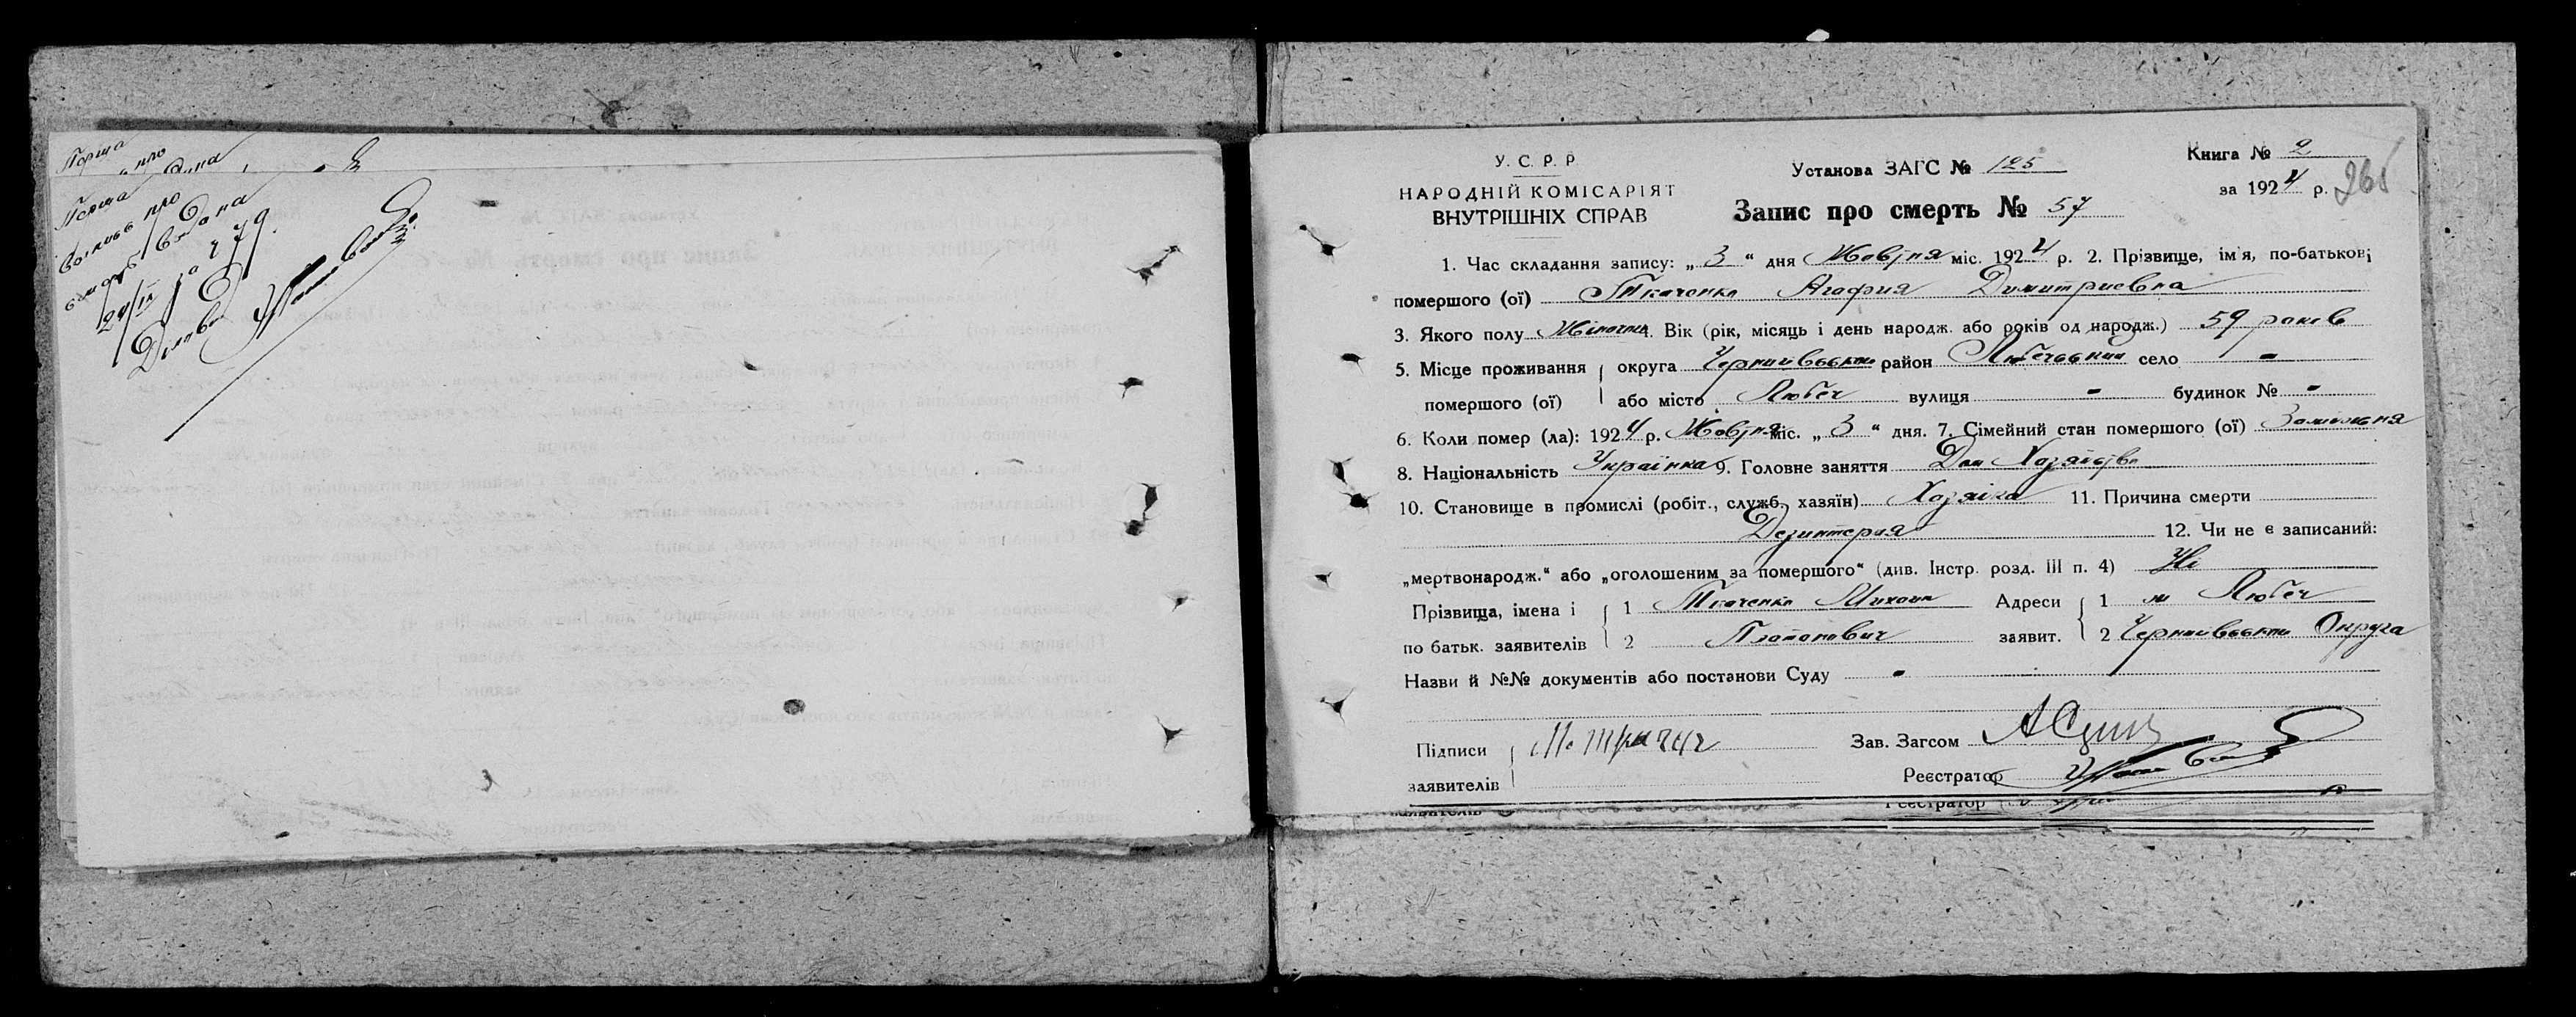 Перша
про
дана
Перша
выпись про
смерть видана
29/IX за № 279
У. С. Р. Р.
НАРОДНІЙ КОМІСАРІЯТ
ВНУТРІШНІХ СПРАВ
Установа ЗАГС № 125
Запис про смерть № 57
Книга № 2
за 1924 р. 265
1. Час складання запису: „ 3 “ дня Жовтня міс. 1924 р. 2. Прізвище, ім'я, по-батькові
помершого (ої) Ткаченко Агафия Димитриевна
3. Якого полу Жіночий 4. Вік (рік, місяць і день народж. або років од народж.) 59 років
5. Місце проживання округа Чернигівська район Любечський село -
помершого (ої) або місто Любеч вулиця - будинок № -
6. Коли помер (ла): 1924 р. Жовтня міс. „ 3 “ дня. 7. Сімейний стан помершого (ої) Замужня
8. Національність Українка 9. Головне заняття Дом Хозяйство
10. Становище в промислі (робіт., служб., хазяїн) Хозяїка 11. Причина смерти
Дезинтерия 12. Чи не є записаний:
„мертвонародж.“ або „оголошеним за помершого“ (див. Інстр. розд. III п. 4) Ні
Прізвища, імена і 1 Ткаченко Михаил Адреси 1 м Любеч
по батьк. заявителів 2 Платонович заявит. 2 Чернигівська Округа
Назви й №№ документів або постанови Суду -
Підписи Зав. Загсом
заявителів Реєстратор
Реєстратор
заявителів